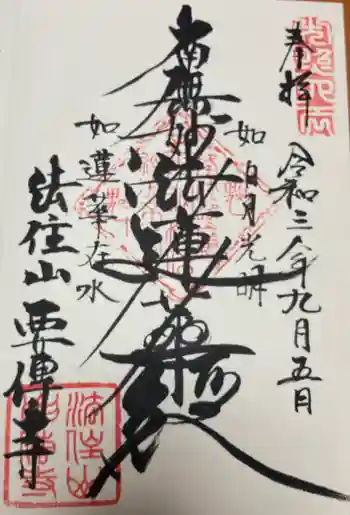 奉拝
令和三年九月五日
如日月光明
南無妙法蓮華経
如蓮華在水
法住山 要傳寺
法住山